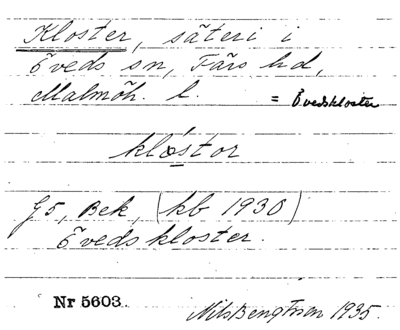 Kloster, säteri i
Öveds sn, Färs hd,
Malmöh. l. = Övedskloster
klóstor
G5, Bek, (kb 1930)
Övedskloster.
Nr 5603.
Nils Bengtsson 1935.